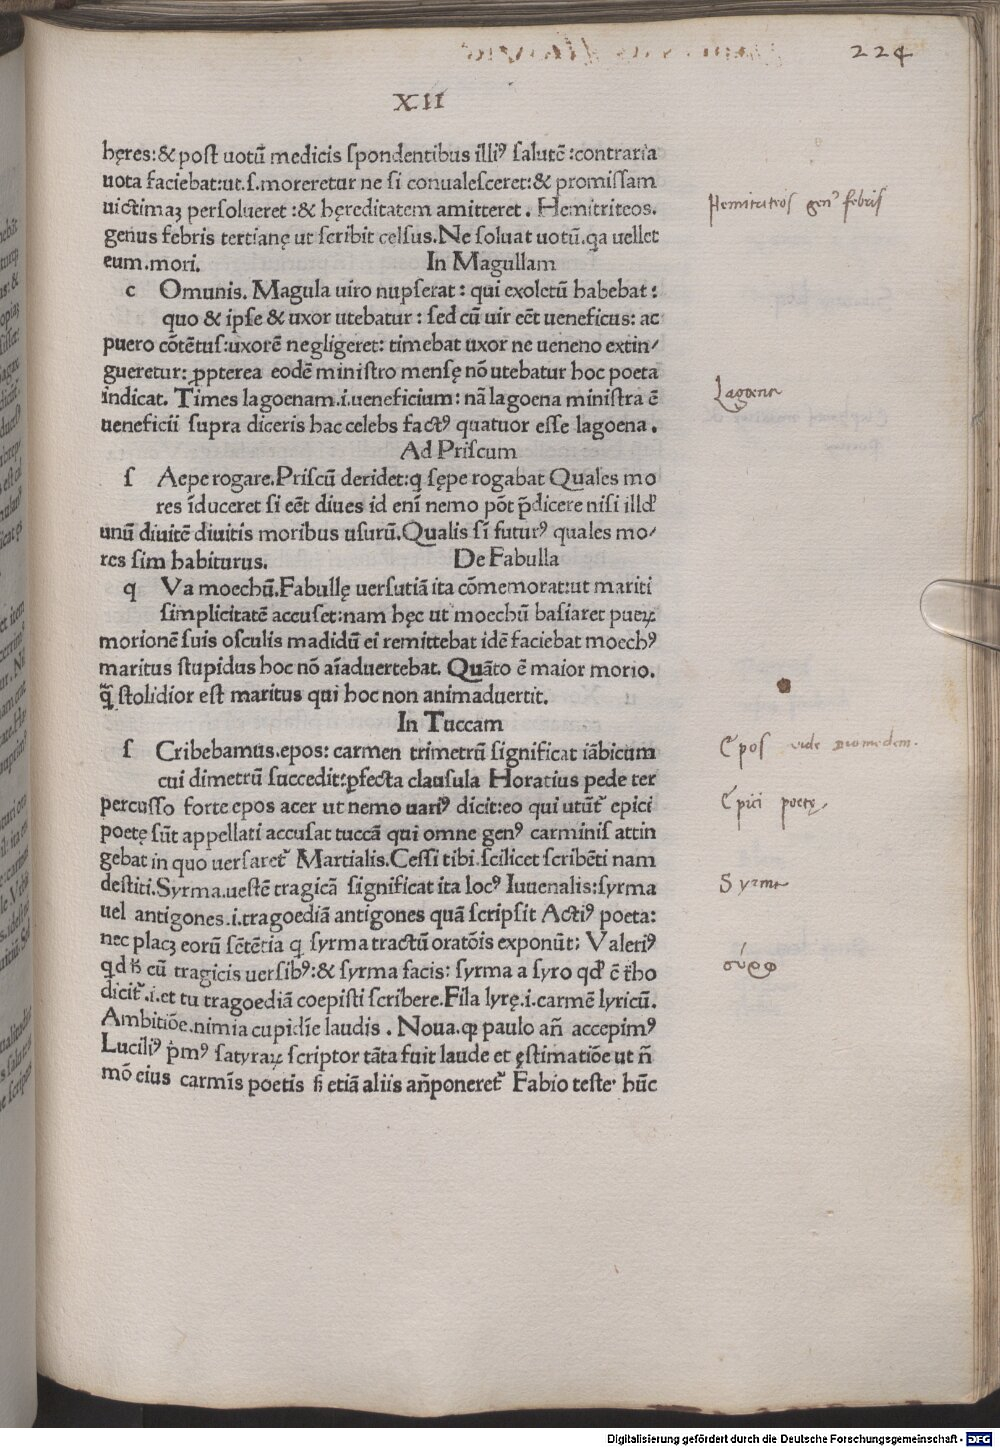 224
XII
hęres:&post uotū medicis spondentibus illiꝰ salutē:contraria
uota faciebat:ut.s.moreretur ne si conualesceret:& promissam
uictimaꝫ persolueret:& hęreditatem amitteret. Hemitriteos.
Hemitriteos genꝰ febris
genus febris tertianę ut scribit celsus.Ne soluat uotū.qa uellet
eum.mori. In Magullam
c Omunis. Magula uiro nupserat: qui exoletū habebat:
quo & ipse & uxor utebatur: sed cū uir eēt ueneficus: ac
puero cōtētus:uxorē negligeret: timebat uxor ne ueneno extin/
gueretur: ꝓpterea eodē ministro mensę nō utebatur hoc poeta
indicat. Times lagoenam.i.ueneficium: nā lagoena ministra ē
Lagoena
ueneficii supra diceris hac celebs factꝰ quatuor esse lagoena.
Ad Priscum
s Aepe rogare.Priscū deridet:q sępe rogabat Quales mo
res īduceret si eēt diues id enī nemo pōt p̄dicere nisi illd'
unū diuitē diuitis moribus usurū.Qualis sī futurꝰ quales mo/
res sim habiturus. De Fabulla
q Va moechū.Fabullę uersutiā ita cōmemorat:ut mariti
simplicitatē accuset:nam hęc ut moechū basiaret pueꝝ
morionē suis osculis madidū ei remittebat idē faciebat moechꝰ
maritus stupidus hoc nō aīaduertebat. Quāto ē maior morio.
q̄ stolidior est maritus qui hoc non animaduertit.
In Tuccam
s Cribebamus.epos: carmen trimetrū significat iābicum
Epos vide Diomedem.
cui dimetrū succedit:ꝑfecta clausula Horatius pede ter
percusso forte epos acer ut nemo uariꝰ dicit:eo qui utūt̄ epici
Epici poetę
poetę sūt appellati accusat tuccā qui omne genꝰ carminis attin
gebat in quo uersaret̄ Martialis.Cessi tibi.scilicet scribēti nam
destiti.Syrma.uestē tragicā significat ita locꝰ Iuuenalis:syrma
Syrma
uel antigones.i.tragoediā antigones quā scripsit Actiꝰ poeta:
nec placꝫ eorū sētētia q syrma tractū oratōis exponūt: Valeriꝰ
σύρω
qd h̄ cū tragicis uersibꝰ:& syrma facis: syrma a syro qd' ē t̄ho
dicit̄.i.et tu tragoediā coepisti scribere.Fila lyrę.i.carmē lyricū.
Ambitiōe.nimia cupidīe laudis. Noua.qꝫ paulo añ accepimꝰ
Luciliꝰ p̄mꝰ satyraꝝ scriptor tāta fuit laude et ęstimatiōe ut ñ
mō eius carmīs poetis h̄ etiā aliis añponeret̄ Fabio teste. hūc
Digitalisierung gefördert durch die Deutsche Forschungsgemeinschaft - DFG